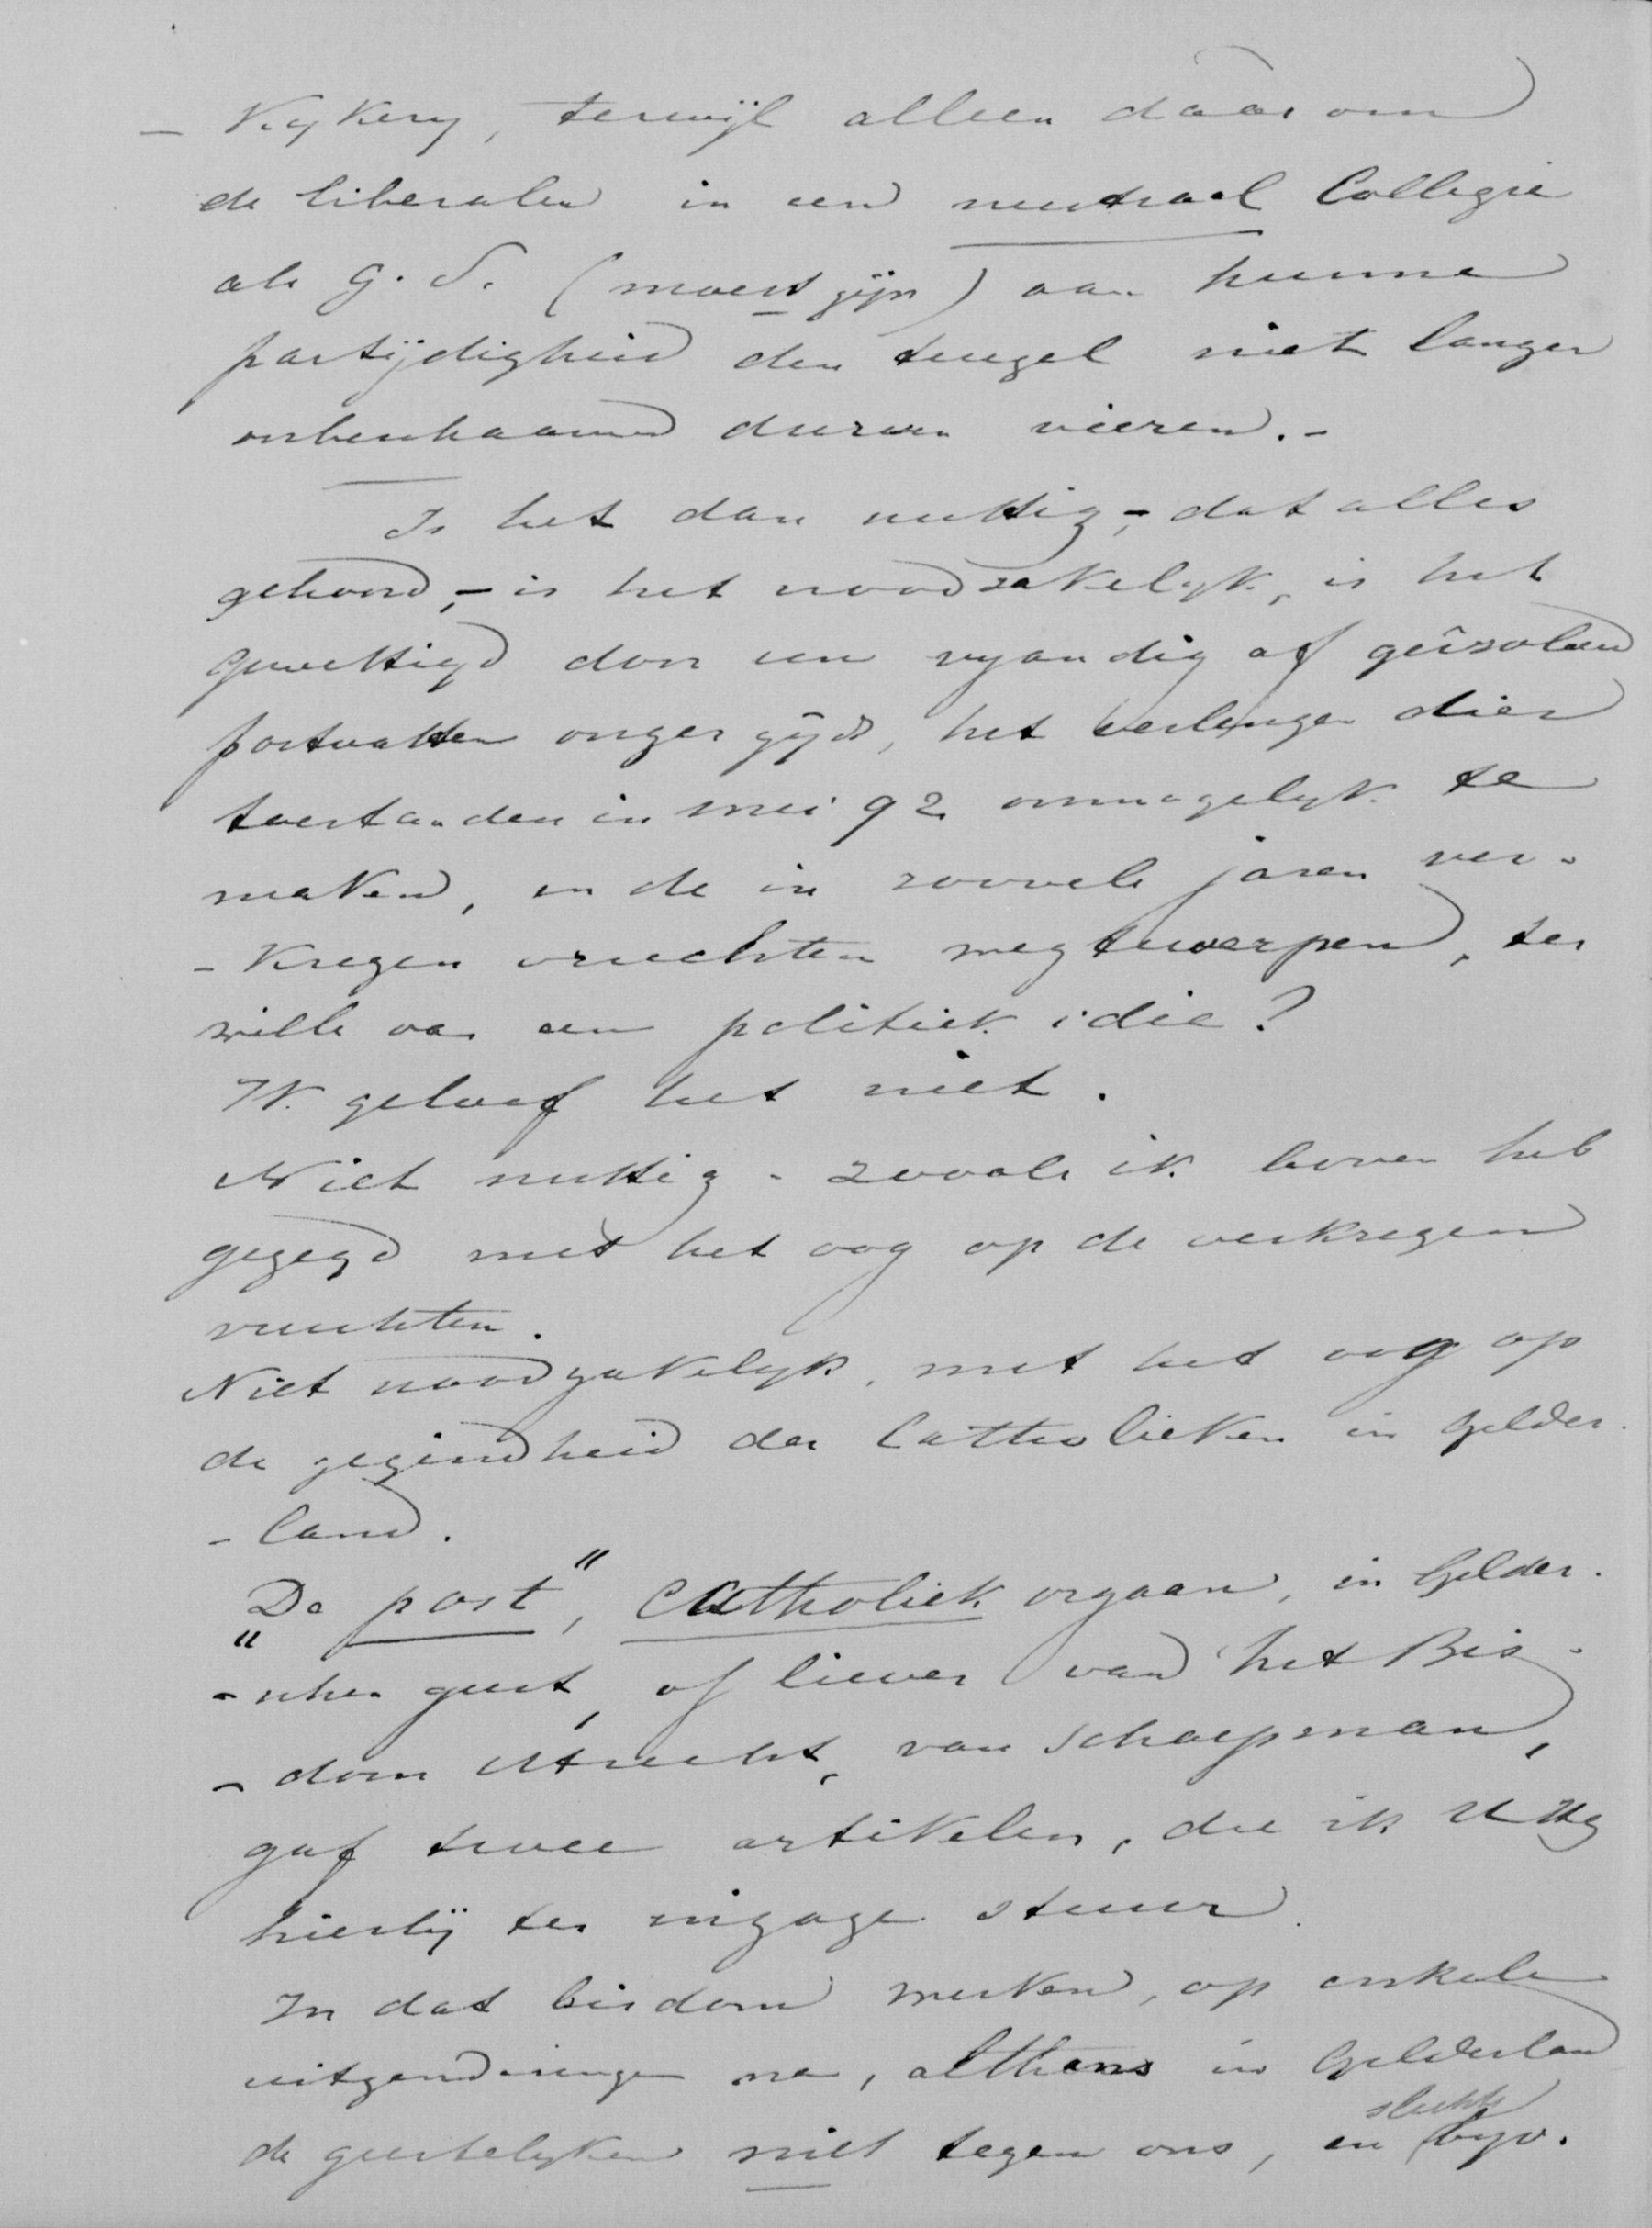 - Kykery, terwijl alleen daarom
de liberalen in een neutraal Collegie
als G. S. (moest zijn) aan hunne
partijdigheid den teugel niet langer
onbeschaamd durven vieren.-
Is het dan nuttig,- dat alles
gehoord,- is het noodzakelyk, is het
gewettigd door een vyandig of geïsoleerd
postvatten onzerzijds, het verlengen dier
toestanden in mei 92 onmogelyk te
maken, en de in zoovele jaren ver-
- kregen vruchten weg te werpen, ter
wille van een politiek idie?
Ik geloof het niet.
Niet nuttig - zooals ik boven heb
gezegd met het oog op de verkregen
vruchten.
Niet noodzakelyk, met het oog op
de gezindheid der Catholieken in Gelder-
- land.
"De post", Catholiek orgaan, in Gelder-
- schen geest, of liever van het Bis-
- dom Utrecht, van Schaepman,
gaf twee artikelen, die ik UHg
hierbij ter inzage stuur.
In dat bisdom werken, op enkele
uitzonderingen na, althans in Gelderland
de geestelyken niet tegen ons, en slechts byv.